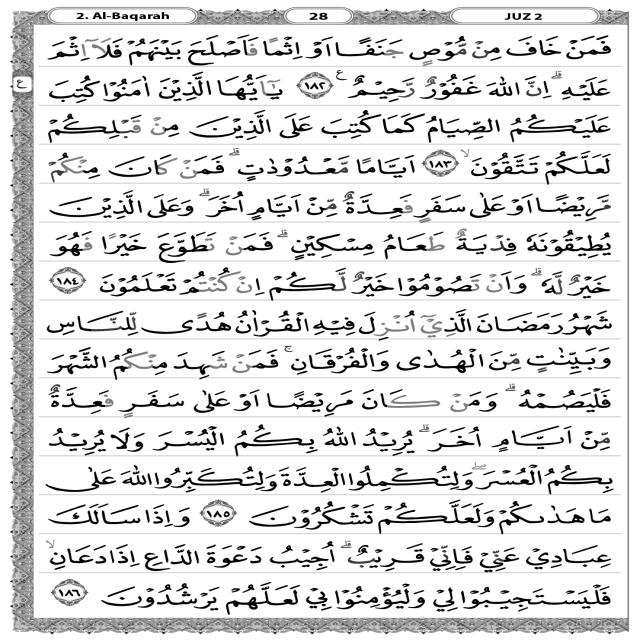 2. Al-Baqarah 28 JUZ 2
فَمَنْ خَافَ مِنْ مُّوْصٍ جَنَفًا اَوْ اِثْمًا فَاَصْلَحَ بَيْنَهُمْ فَلَآ اِثْمَ
ع عَلَيْهِ ۗ اِنَّ اللّٰهَ غَفُوْرٌ رَّحِيْمٌ ࣖ ١٨٢ يٰٓاَيُّهَا الَّذِيْنَ اٰمَنُوْا كُتِبَ
عَلَيْكُمُ الصِّيَامُ كَمَا كُتِبَ عَلَى الَّذِيْنَ مِنْ قَبْلِكُمْ
لَعَلَّكُمْ تَتَّقُوْنَۙ ١٨٣ اَيَّامًا مَّعْدُوْدٰتٍۗ فَمَنْ كَانَ مِنْكُمْ
مَّرِيْضًا اَوْ عَلٰى سَفَرٍ فَعِدَّةٌ مِّنْ اَيَّامٍ اُخَرَ ۗ وَعَلَى الَّذِيْنَ
يُطِيْقُوْنَهٗ فِدْيَةٌ طَعَامُ مِسْكِيْنٍۗ فَمَنْ تَطَوَّعَ خَيْرًا فَهُوَ
خَيْرٌ لَّهٗ ۗ وَاَنْ تَصُوْمُوْا خَيْرٌ لَّكُمْ اِنْ كُنْتُمْ تَعْلَمُوْنَ ١٨٤
شَهْرُ رَمَضَانَ الَّذِيْٓ اُنْزِلَ فِيْهِ الْقُرْاٰنُ هُدًى لِّلنَّاسِ
وَبَيِّنٰتٍ مِّنَ الْهُدٰى وَالْفُرْقَانِۚ فَمَنْ شَهِدَ مِنْكُمُ الشَّهْرَ
فَلْيَصُمْهُ ۗ وَمَنْ كَانَ مَرِيْضًا اَوْ عَلٰى سَفَرٍ فَعِدَّةٌ
مِّنْ اَيَّامٍ اُخَرَ ۗ يُرِيْدُ اللّٰهُ بِكُمُ الْيُسْرَ وَلَا يُرِيْدُ
بِكُمُ الْعُسْرَ ۖ وَلِتُكْمِلُوا الْعِدَّةَ وَلِتُكَبِّرُوا اللّٰهَ عَلٰى
مَا هَدٰىكُمْ وَلَعَلَّكُمْ تَشْكُرُوْنَ ١٨٥ وَاِذَا سَاَلَكَ
عِبَادِيْ عَنِّيْ فَاِنِّيْ قَرِيْبٌ ۗ اُجِيْبُ دَعْوَةَ الدَّاعِ اِذَا دَعَانِۙ
فَلْيَسْتَجِيْبُوْا لِيْ وَلْيُؤْمِنُوْا بِيْ لَعَلَّهُمْ يَرْشُدُوْنَ ١٨٦